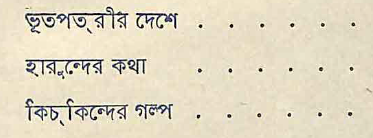 ভূতপত্‌রীর দেশে . . . . . .
হারুন্দের কথা . . . . . .
কিচ্‌কিন্দের গল্প . . . . . .